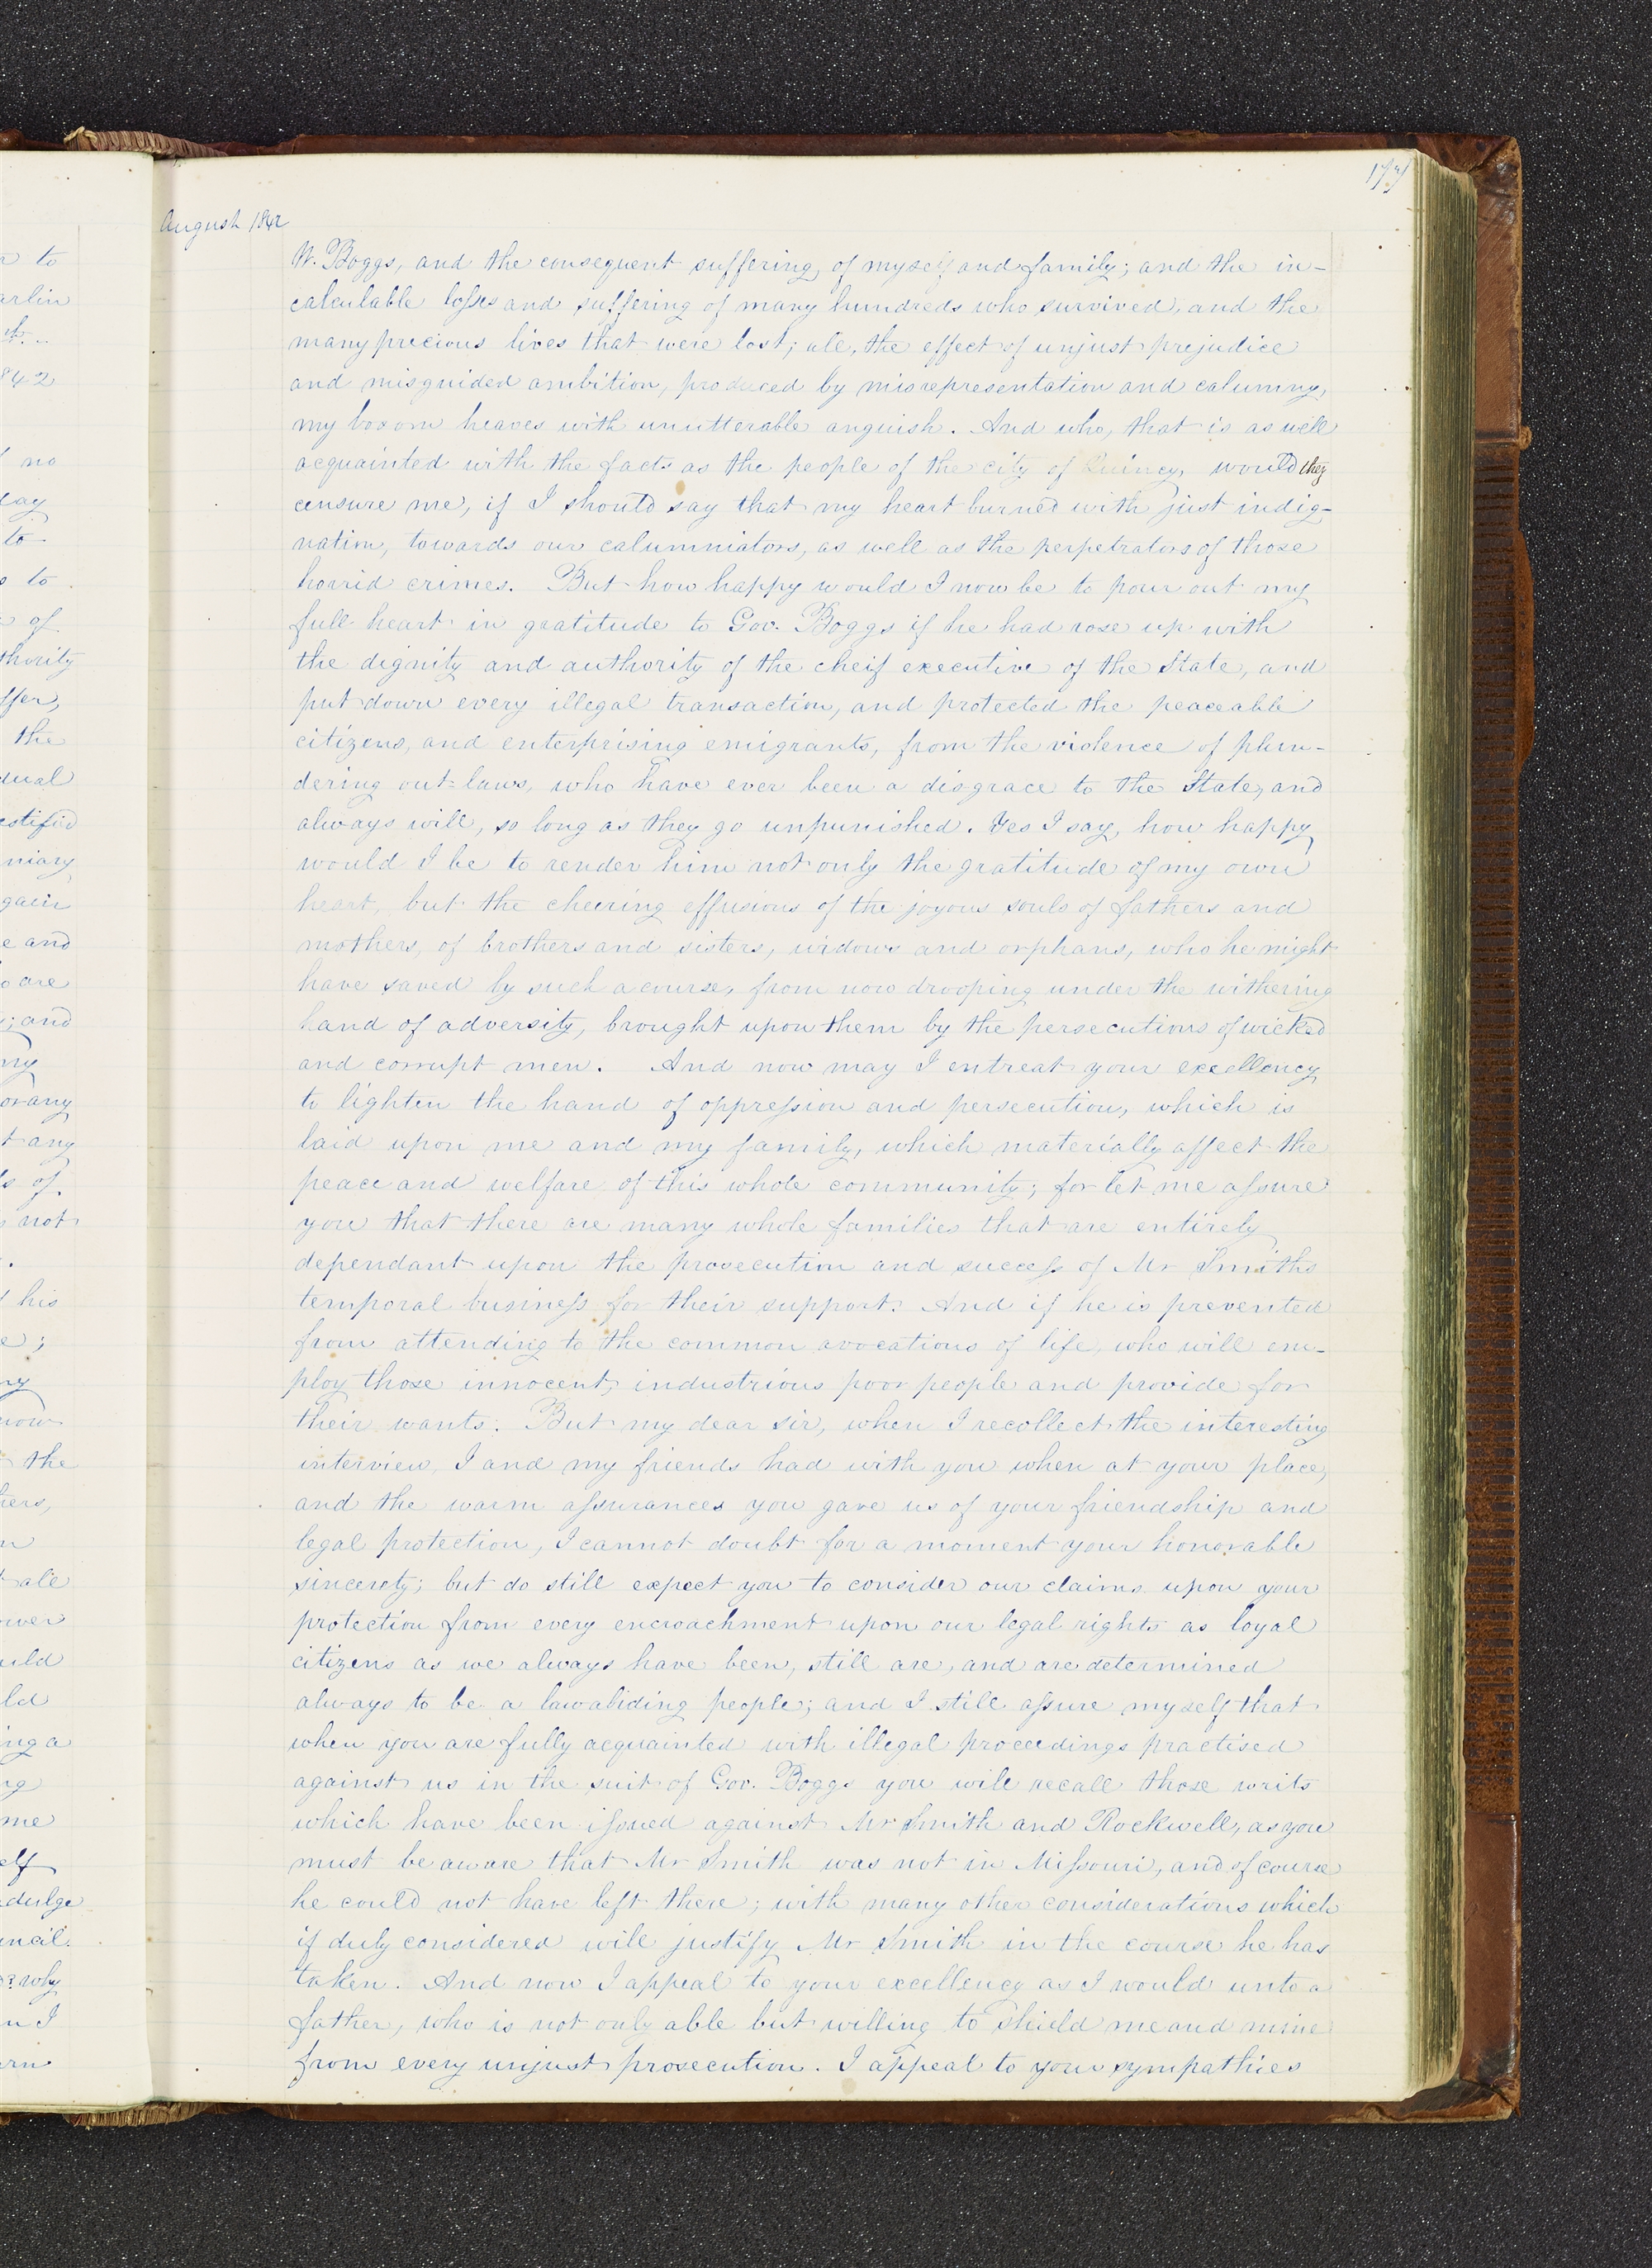 177
August 1842
W. Boggs, and the consequent suffering, of myself and family; and the in-
calculable losses and suffering of many hundreds who survived, and the
many precious lives that were lost; all, the effect of unjust prejudice
and misguided ambition, produced by misrepresentation and calumny,
my bosom heaves with unutterable anguish. And who, that is as well
acquainted with the facts as the people of the city of Quincy, would they
censure me, if I should say that my heart burned with just indig-
nation, towards our calumniators, as well as the perpetrators of those
horrid crimes. But how happy would I now be to pour out my
full heart in gratitude to Gov. Boggs if he had rose up with
the dignity and authority of the cheif executive of the State, and
put down every illegal transaction, and protected the peaceable
citizens, and enterprising emigrants, from the violence of plun-
dering out-laws, who have ever been a disgrace to the State, and
always will, so long as they go unpunished. Yes I say, how happy
would I be to render him not only the gratitude of my own
heart, but the cheering effusions of the joyous souls of fathers and
mothers, of brothers and sisters, widows and orphans, who he might
have saved by such a course, from now drooping under the withering
hand of adversity, brought upon them by the persecutions of wicked
and corrupt men. And now may I entreat your excellency
to lighten the hand of oppression and persecution, which is
laid upon me and my family, which materially affect the
peace and welfare of this whole community; for let me assure
you that there are many whole families that are entirely
dependant upon the prosecution and success of Mr Smiths
temporal business for their support. And if he is prevented
from attending to the common avocations of life, who will em-
ploy those innocent, industrious poor people and provide for
their wants. But my dear sir, when I recollect the interesting
interview, I and my friends had with you when at your place,
and the warm assurances you gave us of your friendship and
legal protection, I cannot doubt for a moment your honorable
sincerety; but do still expect you to consider our claims upon your
protection from every encroachment upon our legal rights as loyal
citizens as we always have been, still are, and are determined
always to be a law abiding people; and I still assure myself that
when you are fully acquainted with illegal proceedings practised
against us in the suit of Gov. Boggs you will recall those writs
which have been issued against Mr Smith and Rockwell, as you
must be aware that Mr Smith was not in Missouri, and of course
he could not have left there; with many other considerations which
if duly considered will justify Mr Smith in the course he has
taken. And now I appeal to your excellency as I would unto a
father, who is not only able but willing to shield me and mine
from every unjust prosecution. I appeal to your sympathies